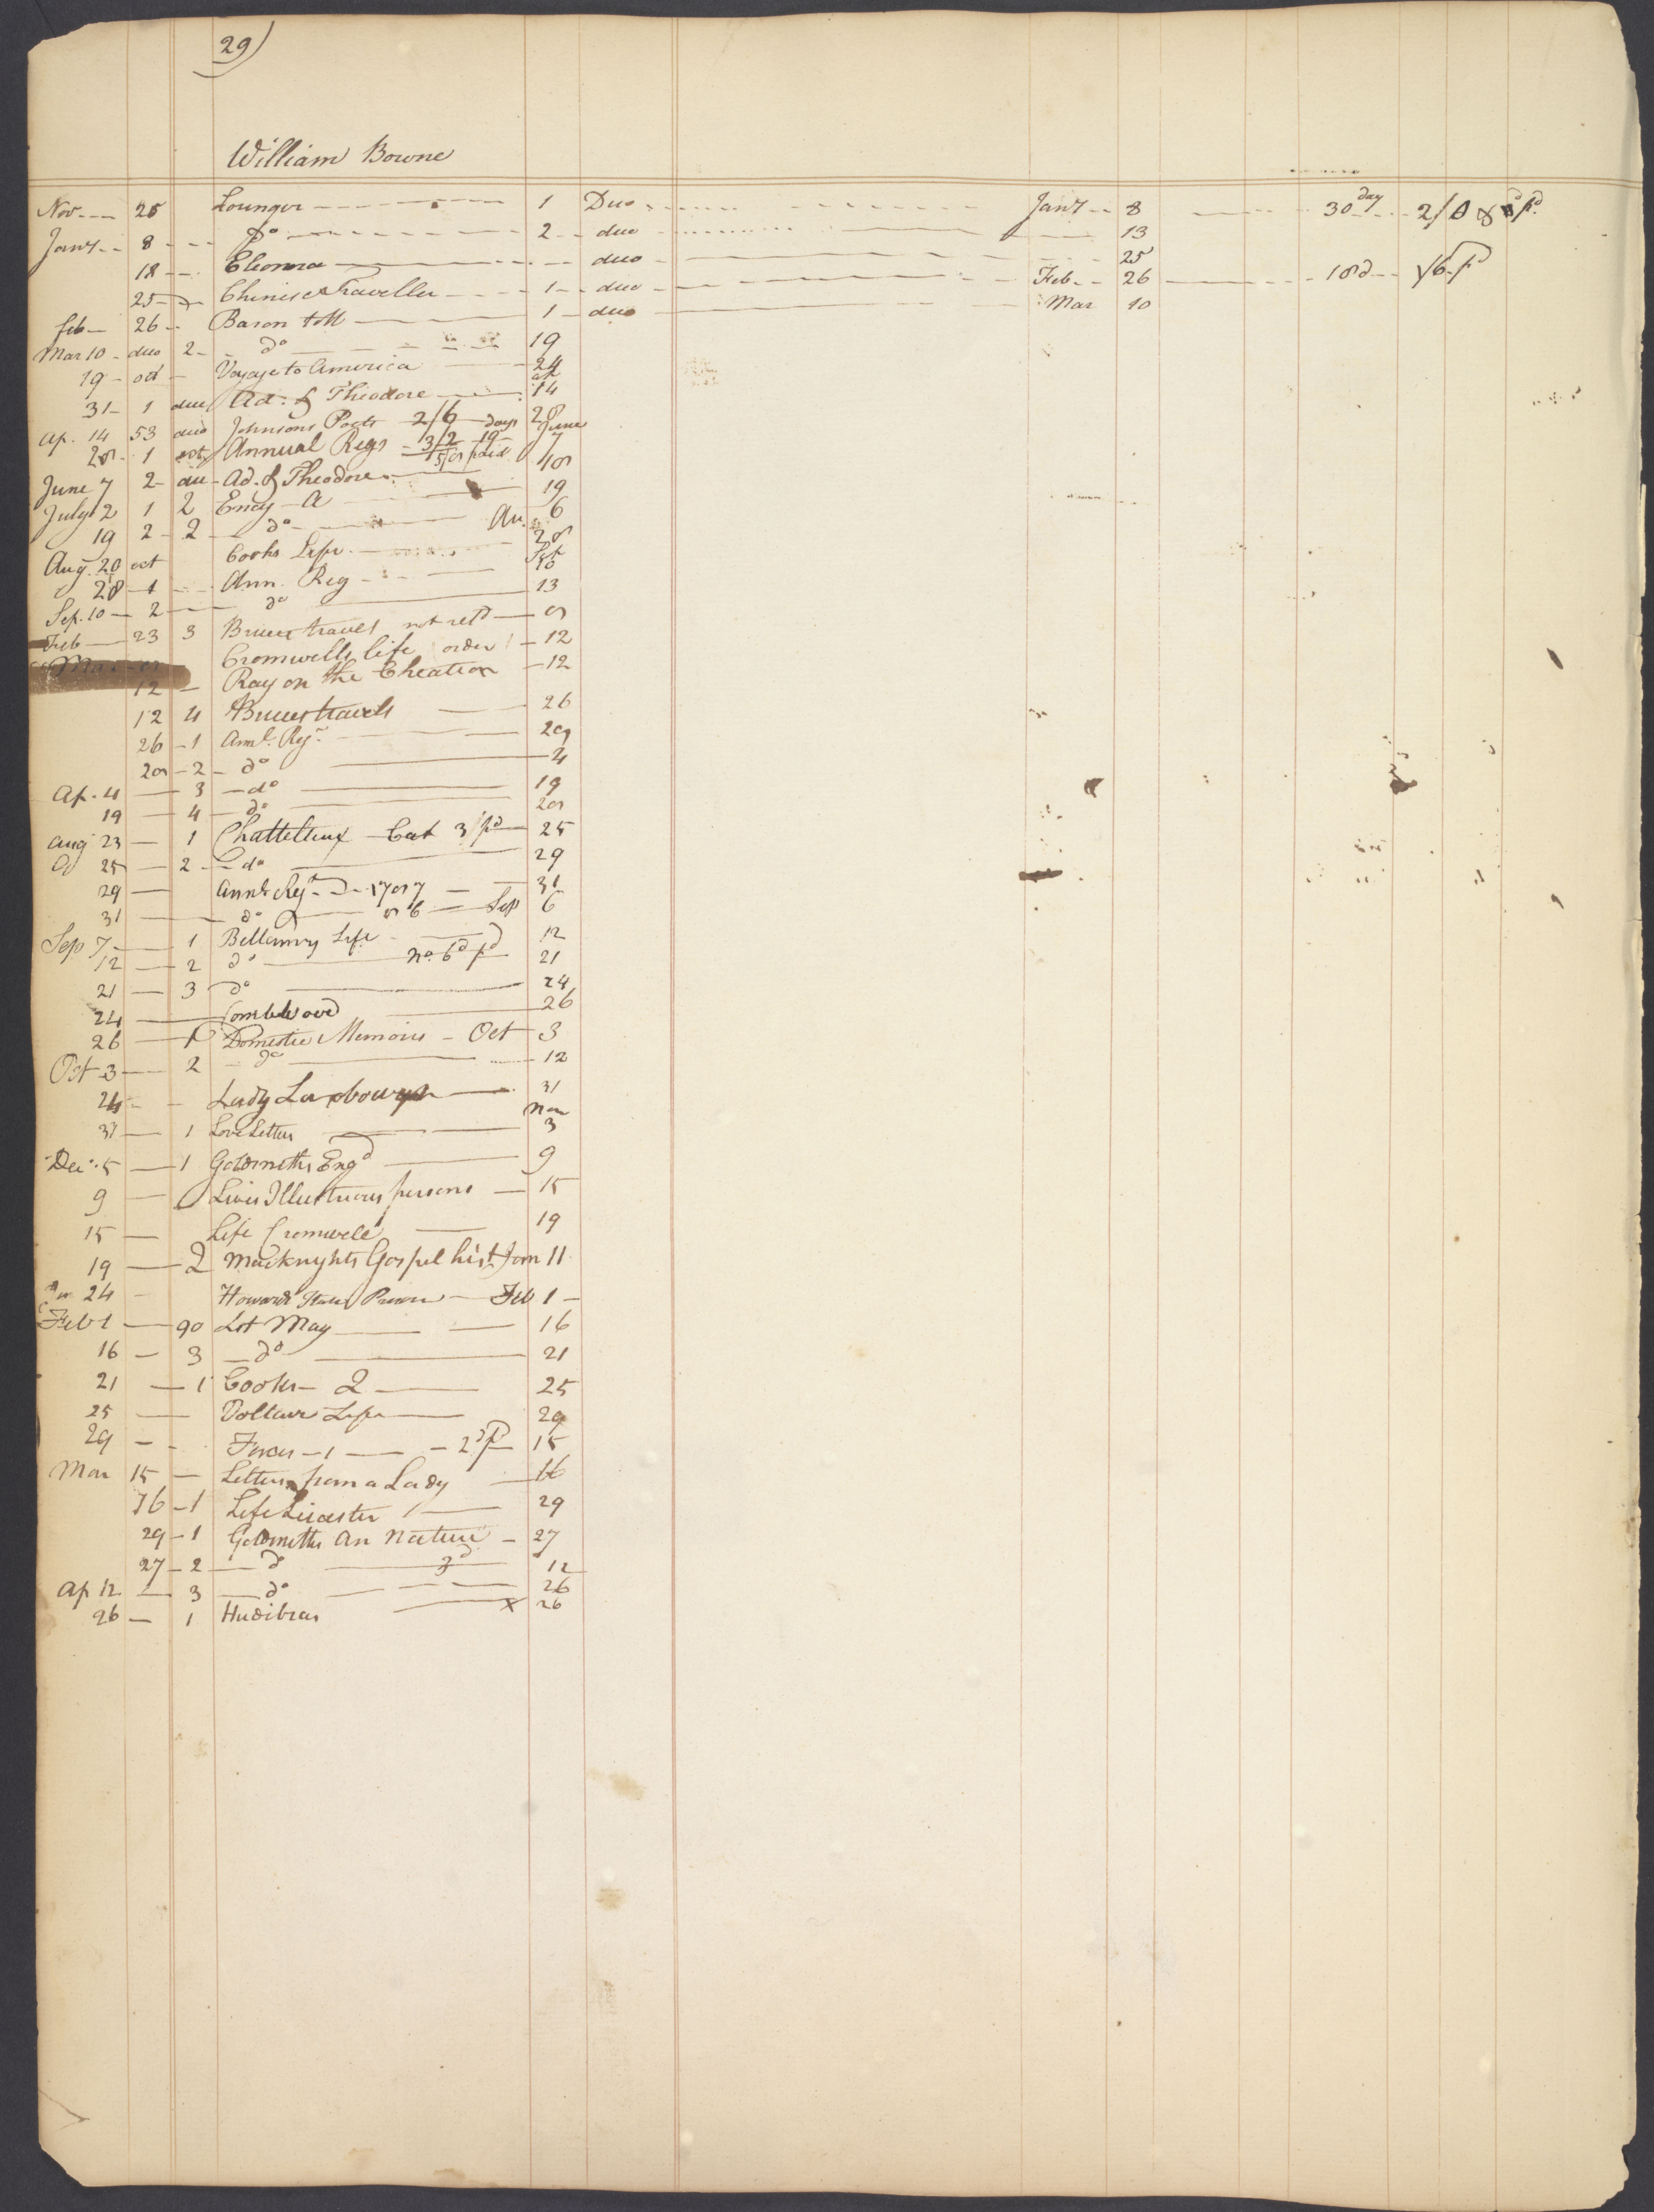 29)
William Bowne
Nov 25 Lounger 1 Duo Jany 8 30 day 2/
Jany 8 Do 2 duo 13
18 Eleonora duo 25
25 Chinise Traveller 1 duo Feb 26 18 d 1/6 pd
Feb 26 Baron tott 1 duo Mar 10
Mar 10 duo 2 do 19
19 oct Voyage to America 24
31 1 duo Ad. & Theodore ap 14
ap. 14 53 duo Johnsons Poets 2/6 28
28 1 oct Annual Regr 3/2 19 days June 7
June 7 2 du Ad. & Theodore 5/8 paid 18
July 12 1 2 Ency A 19
19 2 2 do Au. 6
Aug. 20 oct Cooks Life 28
28 1 Ann. Reg Sept 10
Sep. 10 2 do 13
Feb 23 3 Bruces travels not retd 8
Mar 8 Cromwells life order 12
12 Ray on the Creation 12
12 4 Bruces travels 26
26 1 Annl. Regr 28
28 2 do 4
Ap. 4 3 do 19
19 4 do 28
Aug 23 1 Chattelleux Cat 3/ pd 25
25 2 do 29
29 Annl Regr 1787 31
31 do 86 Sep 6
Sep 7 1 Bellamy Life 12
12 2 do no. 6d pd 21
21 3 do 24
24 Comble Wood 26
26 1 Domestic Memoirs Oct 3
Oct 3 2 do 12
24 Lady Luxbourgh 31
31 1 Love Letters Nov 3
Dec. 5 1 Goldsmiths Engd 9
9 Lives Illustrious persons 15
15 Life Cromwell 19
19 2 Macknights Gospel hist Jan 11
Jan 24 Howards State Prison Feb 1
Feb 1 90 Lit Mag 16
16 3 do 21
21 1 Cooks 2 25
25 Voltaires Life 29
29 1 2d pd 15
Mar 15 Letters from a Lady 16
16 1 Life Leicester 29
29 1 Goldsmiths An Nature 27
27 2 do 3d 12
Ap 12 3 do 26
26 1 Hudibras x 26